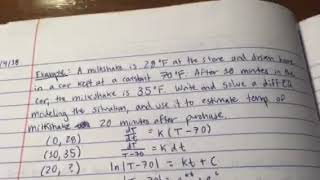 4/18
Example: A milkshake is 28°F at the store and driven home
in a car kept at a constant 70°F. After 10 minutes in the
car, the milkshake is 35°F. Write and solve a diff EQ
modeling the situation, and use it to estimate temp of
milkshake 20 minutes after purchase.
(0, 28) dT/dt = k(T-70)
(10, 35) dT/T-70 = k dt
(20, ?) ln|T-70| = kt + C